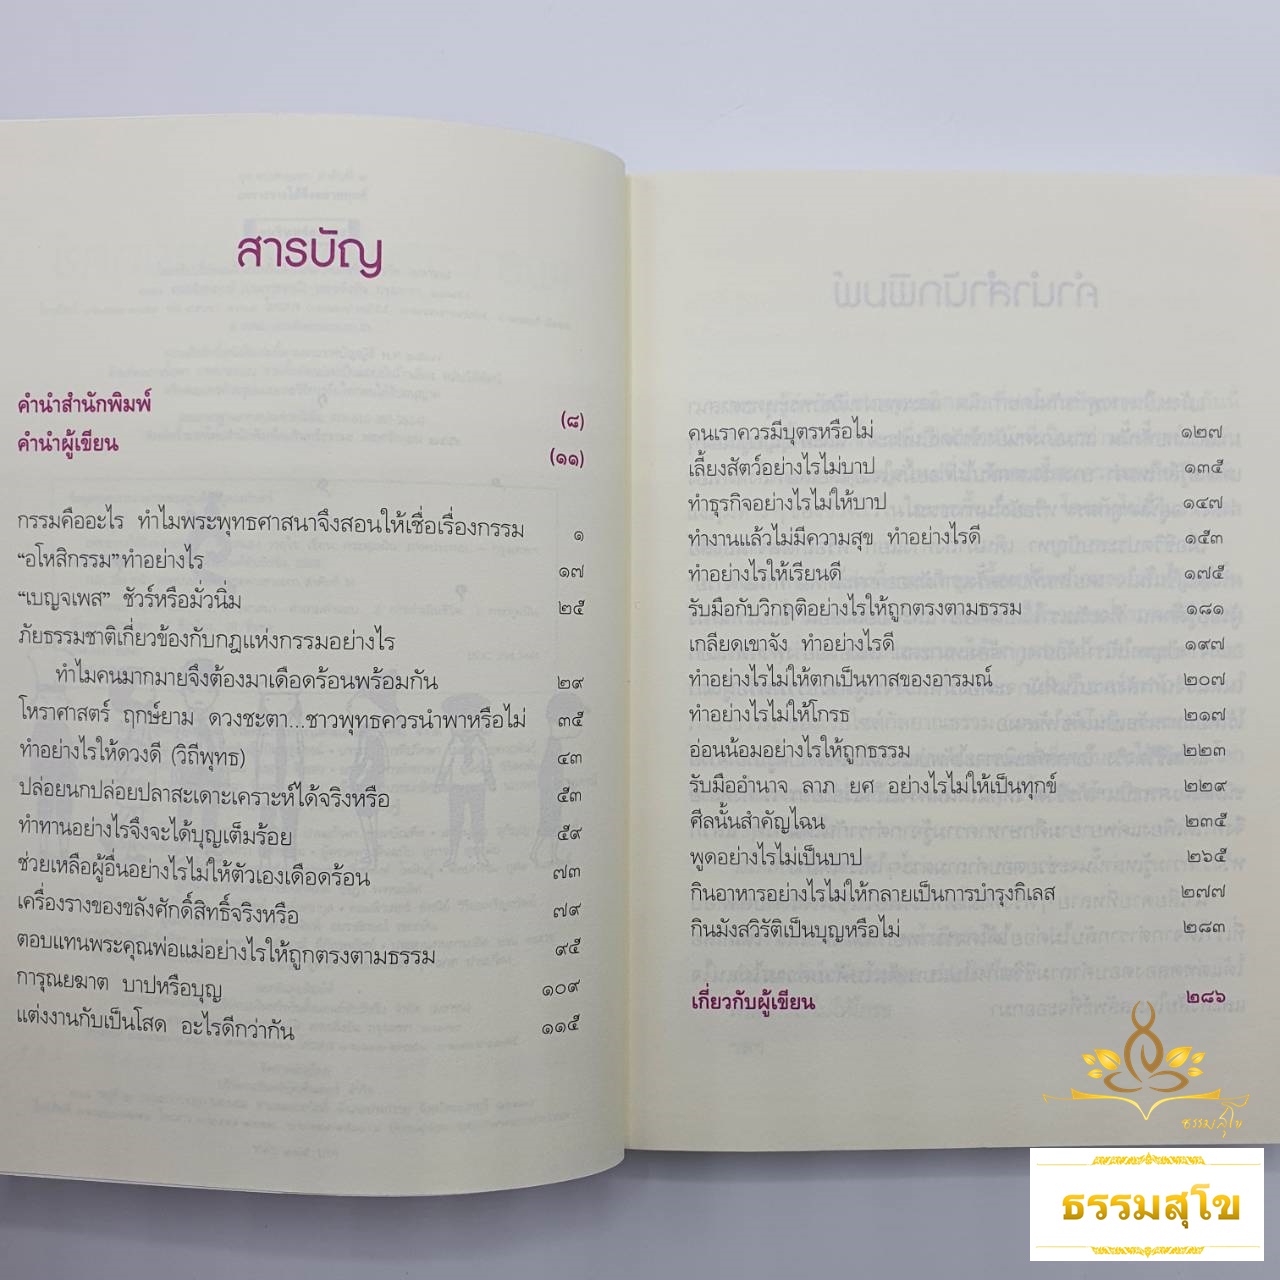 สารบัญ
คำนำสำนักพิมพ์ (๘)
คำนำผู้เขียน (๑๑)
กรรมคืออะไร ทำไมพระพุทธศาสนาจึงสอนให้เชื่อเรื่องกรรม ๑
“อโหสิกรรม”ทำอย่างไร ๑๗
“เบญจเพส” ชัวร์หรือมั่วนิ่ม ๒๕
ภัยธรรมชาติเกี่ยวข้องกับกฎแห่งกรรมอย่างไร
ทำไมคนมากมายจึงต้องมาเดือดร้อนพร้อมกัน ๒๙
โหราศาสตร์ ฤกษ์ยาม ดวงชะตา...ชาวพุทธควรนำพาหรือไม่ ๓๕
ทำอย่างไรให้ดวงดี (วิถีพุทธ) ๔๓
ปล่อยนกปล่อยปลาสะเดาะเคราะห์ได้จริงหรือ ๕๓
ทำทานอย่างไรจึงจะได้บุญเต็มร้อย ๕๙
ช่วยเหลือผู้อื่นอย่างไรไม่ให้ตัวเองเดือดร้อน ๗๓
เครื่องรางของขลังศักดิ์สิทธิ์จริงหรือ ๗๙
ตอบแทนพระคุณพ่อแม่อย่างไรให้ถูกตรงตามธรรม ๙๕
การุณยฆาต บาปหรือบุญ ๑๐๙
แต่งงานกับเป็นโสด อะไรดีกว่ากัน ๑๑๕
คนเราควรมีบุตรหรือไม่ ๑๒๗
เลี้ยงสัตว์อย่างไรไม่บาป ๑๓๕
ทำธุรกิจอย่างไรไม่ให้บาป ๑๔๗
ทำงานแล้วไม่มีความสุข ทำอย่างไรดี ๑๕๓
ทำอย่างไรให้เรียนดี ๑๗๕
รับมือกับวิกฤติอย่างไรให้ถูกตรงตามธรรม ๑๘๑
เกลียดเขาจัง ทำอย่างไรดี ๑๙๗
ทำอย่างไรไม่ให้ตกเป็นทาสของอารมณ์ ๒๐๗
ทำอย่างไรไม่ให้โกรธ ๒๑๗
อ่อนน้อมอย่างไรให้ถูกธรรม ๒๒๓
รับมืออำนาจ ลาภ ยศ อย่างไรไม่ให้เป็นทุกข์ ๒๒๙
ศีลนั้นสำคัญไฉน ๒๓๕
พูดอย่างไรไม่เป็นบาป ๒๖๕
กินอาหารอย่างไรไม่ให้กลายเป็นการบำรุงกิเลส ๒๗๗
กินมังสวิรัติเป็นบุญหรือไม่ ๒๘๓
เกี่ยวกับผู้เขียน ๒๘๖
ธรรมสุโข
ธรรมสุโข